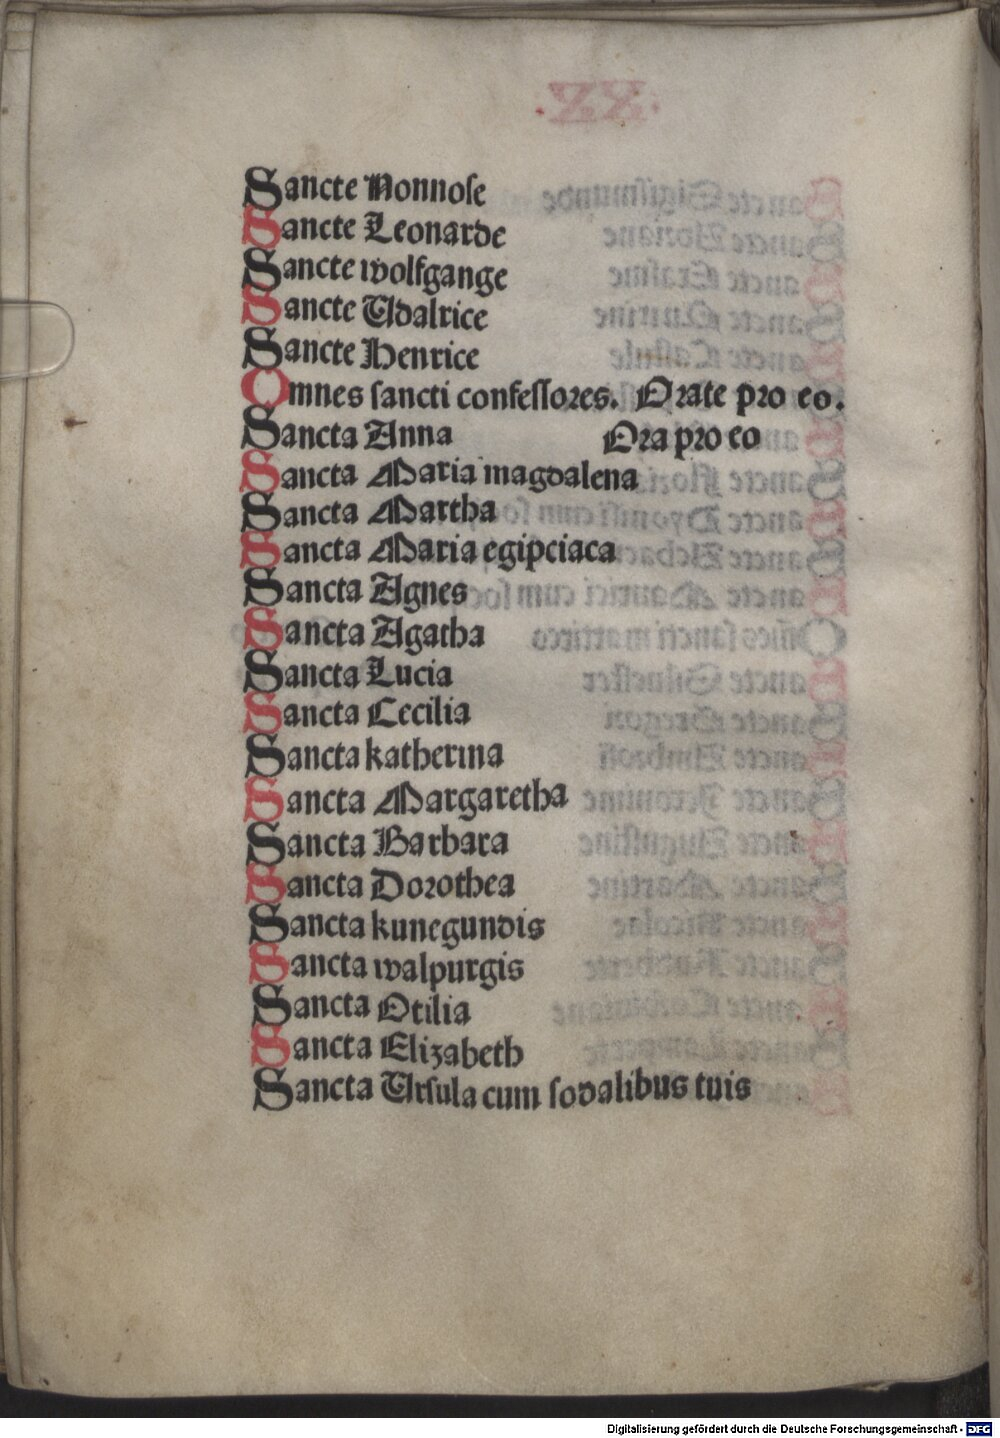 Sancte Nonnose
Sancte Leonarde
Sancte wolfgange
Sancte Udalrice
Sancte Henrice
Omnes sancti confessores. Orate pro eo.
Sancta Anna Ora pro eo
Sancta Maria magdalena
Sancta Martha
Sancta Maria egipciaca
Sancta Agnes
Sancta Agatha
Sancta Lucia
Sancta Cecilia
Sancta katherina
Sancta Margaretha
Sancta Barbara
Sancta Dorothea
Sancta kunegundis
Sancta walpurgis
Sancta Otilia
Sancta Elizabeth
Sancta Ursula cum sodalibus tuis
Digitalisierung gefördert durch die Deutsche Forschungsgemeinschaft - DFG